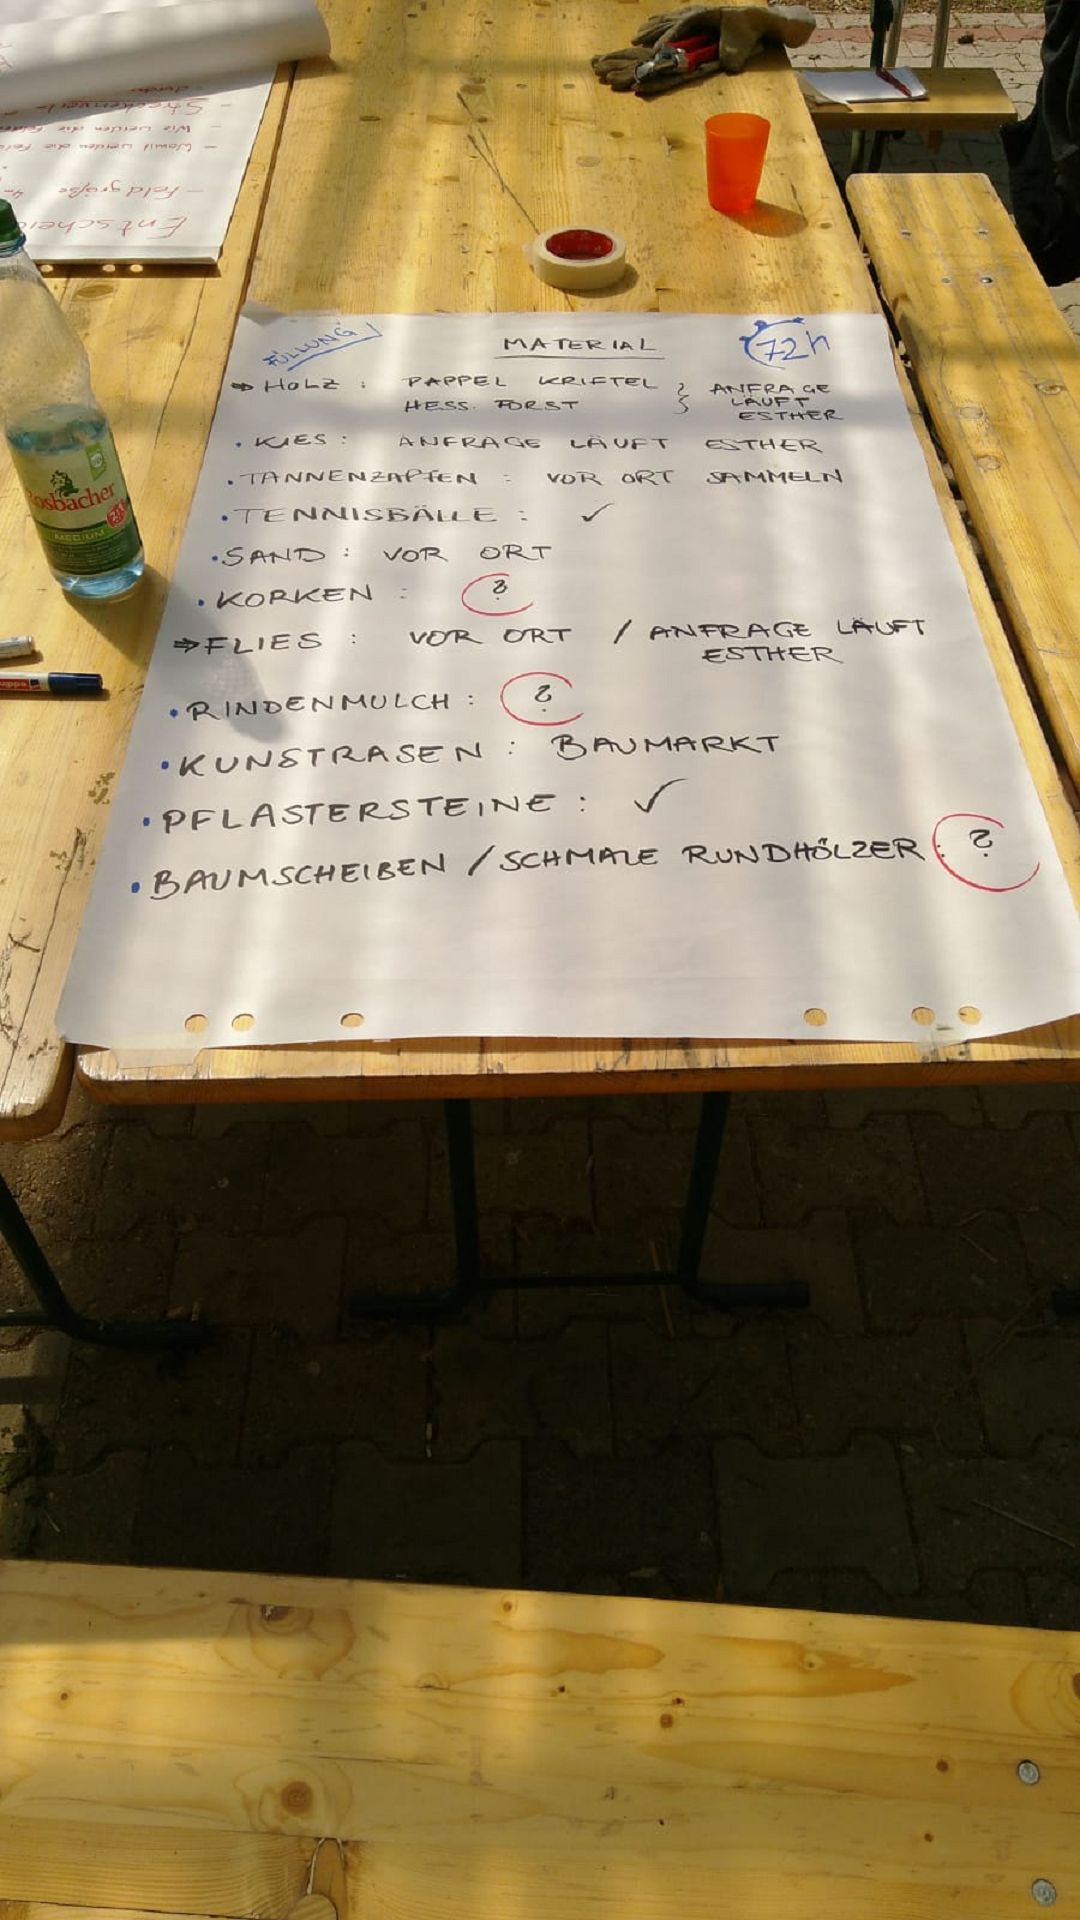 FÜLLUNG
MATERIAL
72h
⇒ HOLZ : PAPPEL KRIFTEL } ANFRAGE
HESS. FORST LÄUFT
ESTHER
• KIES : ANFRAGE LÄUFT ESTHER
• TANNENZAPFEN : VOR ORT SAMMELN
• TENNISBÄLLE : ✓
• SAND : VOR ORT
• KORKEN : ?
⇒ FLIES : VOR ORT / ANFRAGE LÄUFT
ESTHER
• RINDENMULCH : ?
• KUNSTRASEN : BAUMARKT
• PFLASTERSTEINE : ✓
• BAUMSCHEIBEN / SCHMALE RUNDHÖLZER : ?
Rosbacher
MEDIUM
edding
- Wie werden die
- Womit werden die
- Feldgröße